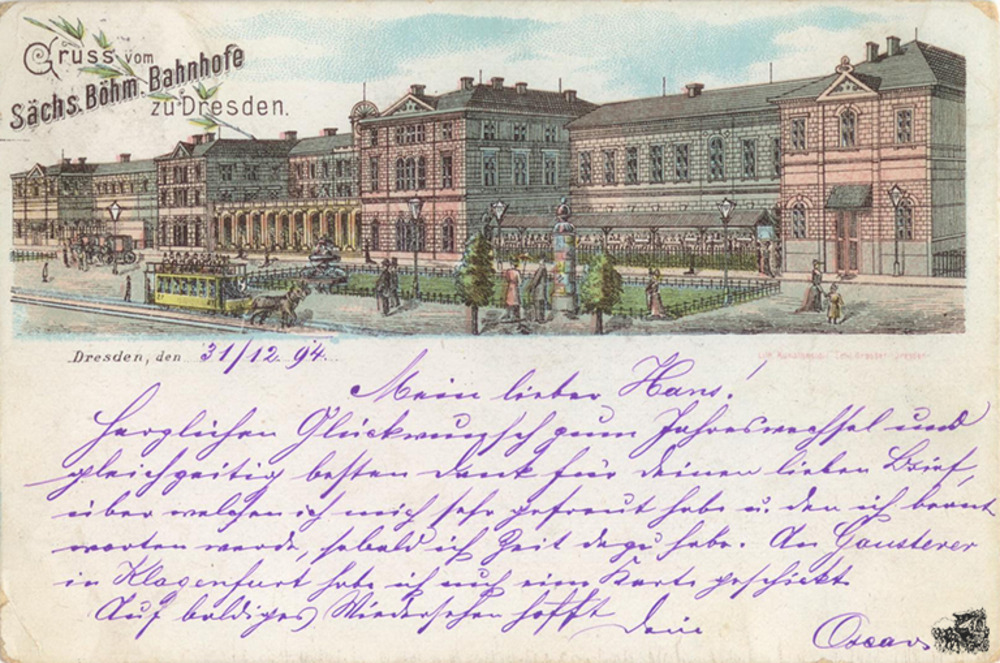 Gruss vom
Sächs. Böhm. Bahnhofe
zu Dresden.
Dresden, den 31/12. 94.
Mein lieber Hans!
Herzlichen Glückwunsch zum Jahreswechsel und
gleichzeitig besten Dank für deinen lieben Brief,
über welchen ich mich sehr gefreut habe u. den ich beant
worten werde, sobald ich Zeit dazu habe. An Gausterer
in Klagenfurt habe ich auch eine Karte geschickt
Auf baldiges Wiedersehen hofft
Dein
Oscar.